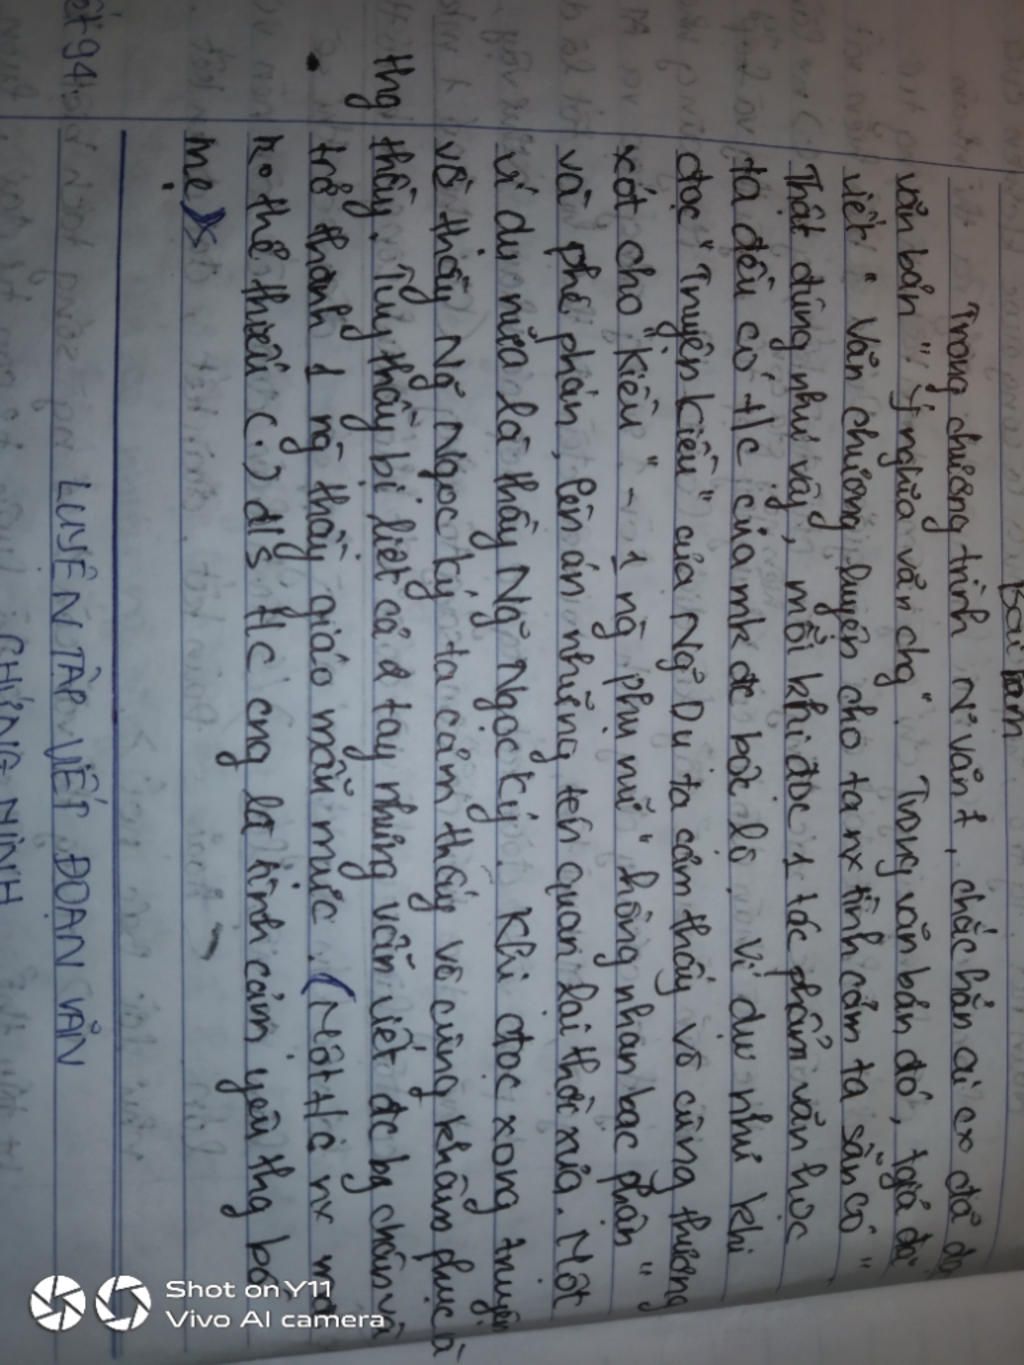 Bài làm
Trong chương trình N.văn 7, chắc hẳn ai cx đã đọc
văn bản "Ý nghĩa văn chg". Trong văn bản đó, tgiả đã
viết "Văn chương luyện cho ta nx tình cảm ta sẵn có"
Thật đúng như vậy, mỗi khi đọc 1 tác phẩm văn học
ta đều có t/c của mk đc bộc lộ. Ví dụ như khi
đọc "Truyện Kiều" của Ng~ Du ta cảm thấy vô cùng thương
xót cho "Kiều" - 1 ng phụ nữ "hồng nhan bạc phận"
và phê phán, lên án những tên quan lại thời xưa. Một
ví dụ nữa là thầy Ng~ Ngọc Ký. Khi đọc xong truyện
về thầy Ng~ Ngọc Ký ta cảm thấy vô cùng khâm phục và
thg thầy. Tuy thầy bị liệt cả 2 tay nhưng vẫn viết đc bg chân và
trở thành 1 ng thầy giáo mẫu mực. (Một t/c nx mà
ko thể thiếu (.) d/s t/c cng là tình cảm yêu thg bố
mẹ)
LUYỆN TẬP VIẾT ĐOẠN VĂN
CHỨNG MINH